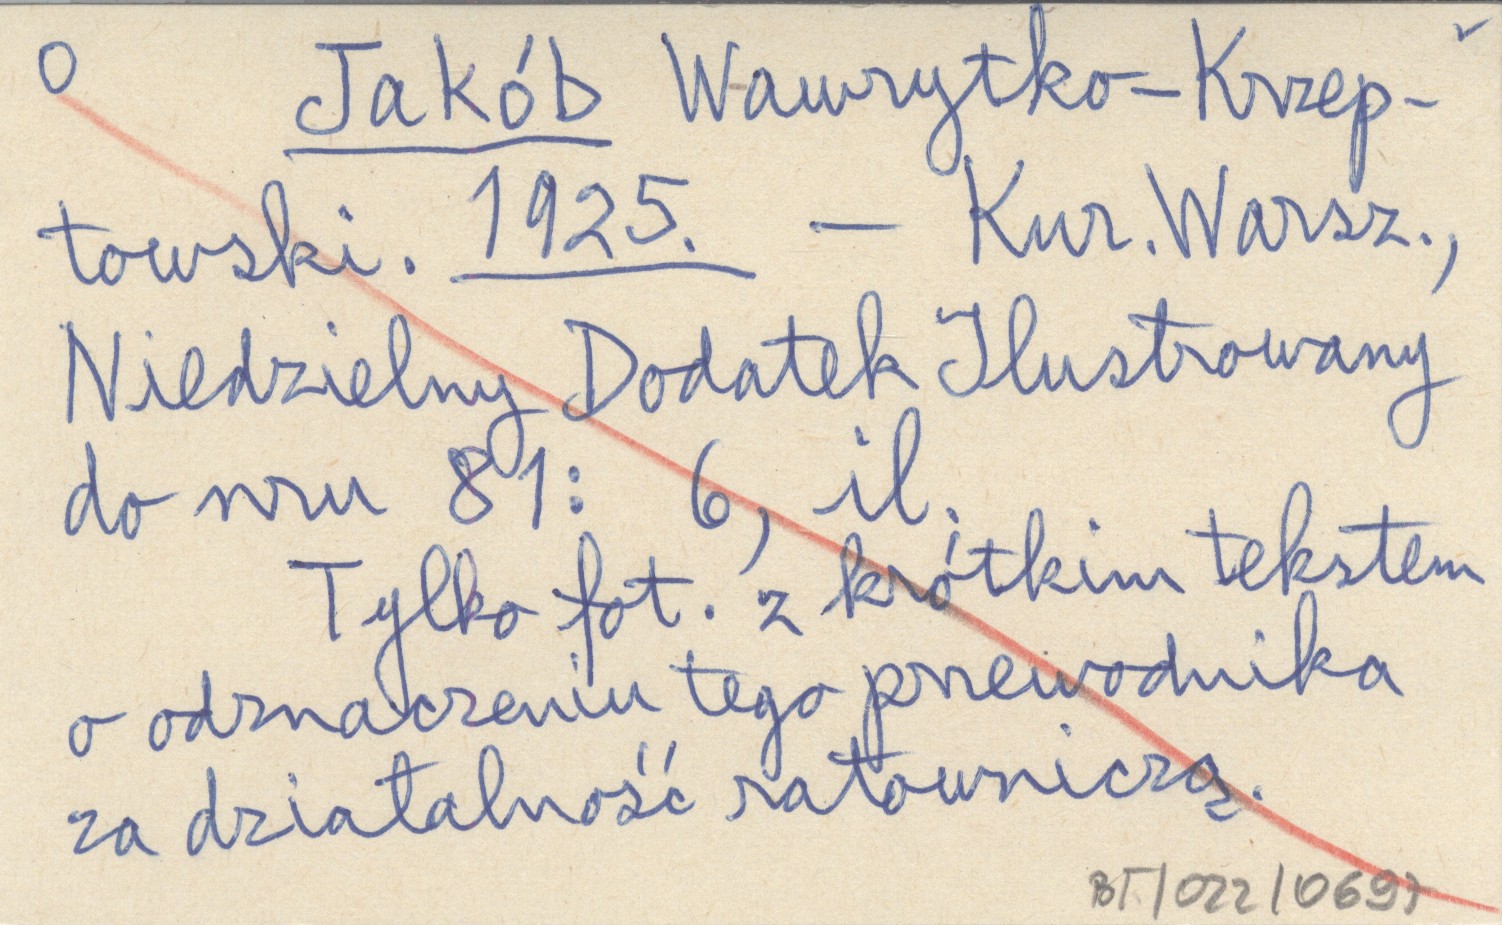 O Jakób Wawrytko-Krzep-
towski. 1925. — Kur. Warsz.,
Niedzielny Dodatek Ilustrowany
do nru 81: 6, il.
Tylko fot. z krótkim tekstem
o odznaczeniu tego przewodnika
za działalność ratowniczą.
BT/022/0697